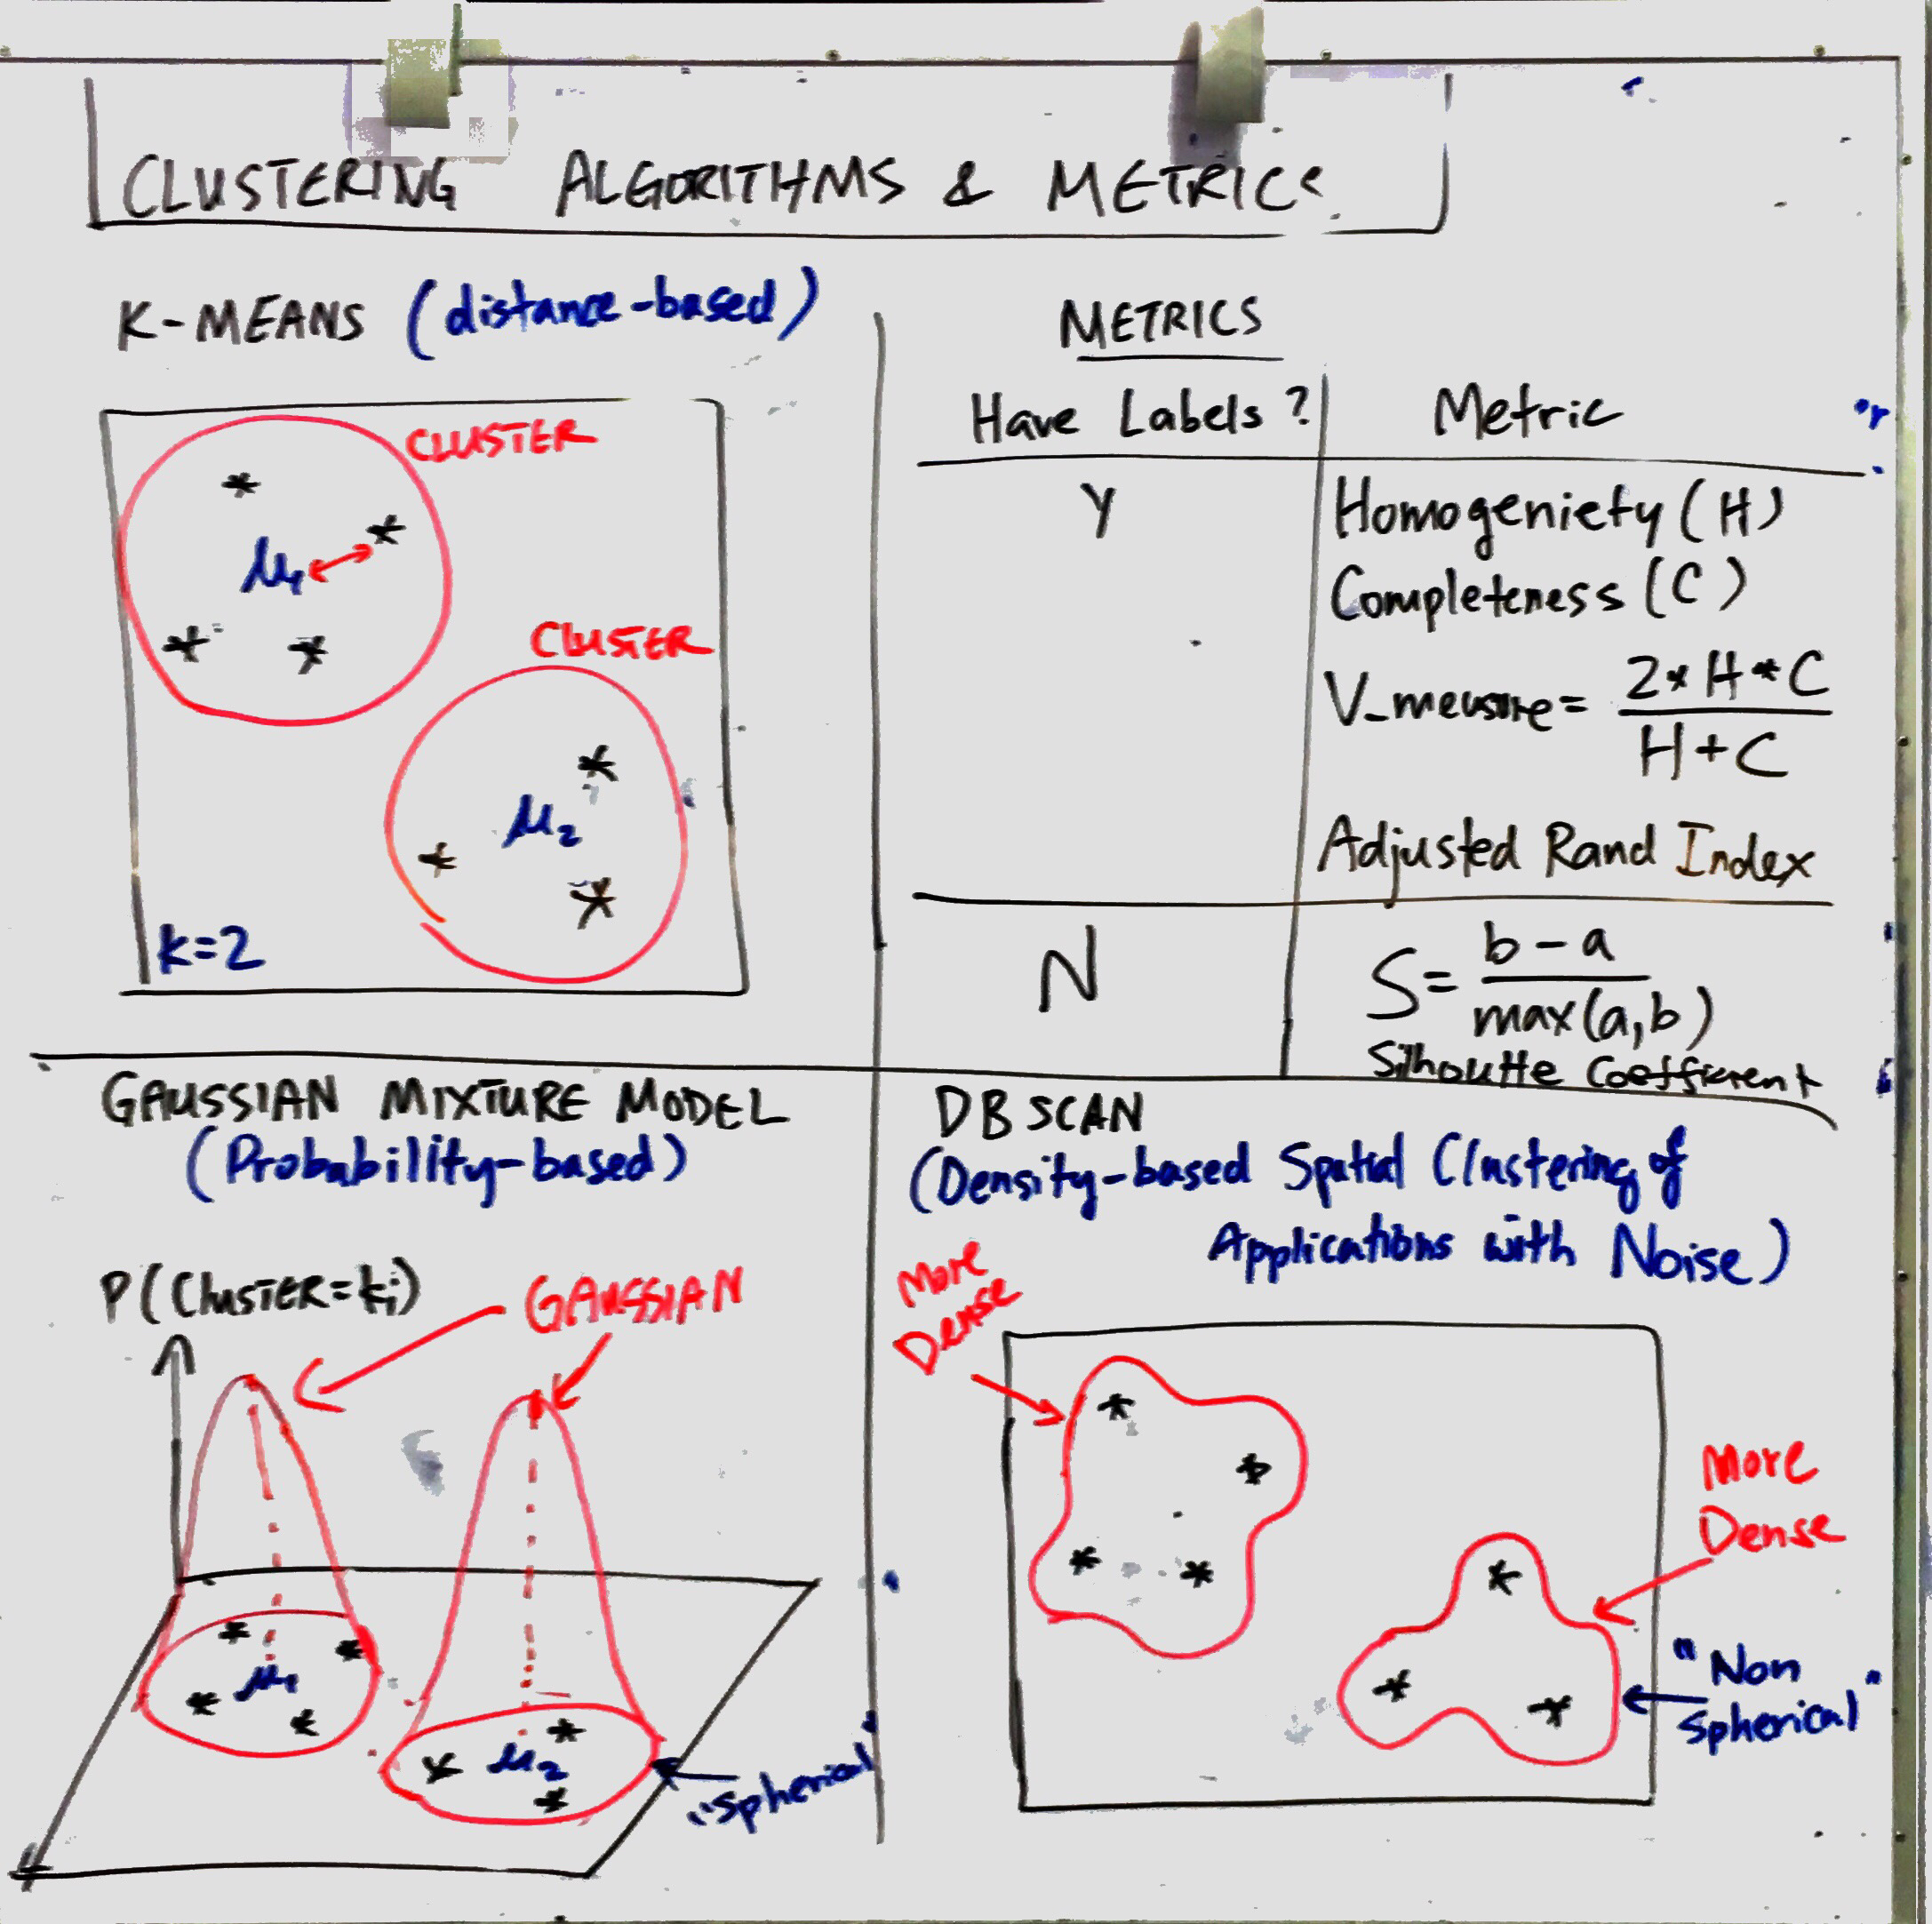 CLUSTERING ALGORITHMS & METRICS
K-MEANS (distance-based)
CLUSTER
μ1
CLUSTER
μ2
k=2
METRICS
Have Labels? Metric
Y Homogeniety (H)
Completeness (C)
V_measure = 2*H*C
H+C
Adjusted Rand Index
N S= b-a
max(a,b)
Silhoutte Coefficient
GAUSSIAN MIXTURE MODEL
(Probability-based)
P(CLUSTER=ki)
GAUSSIAN
μ1
μ2
"Spherical"
DBSCAN
(Density-based Spatial Clustering of
Applications with Noise)
More
Dense
More
Dense
"Non
Spherical"